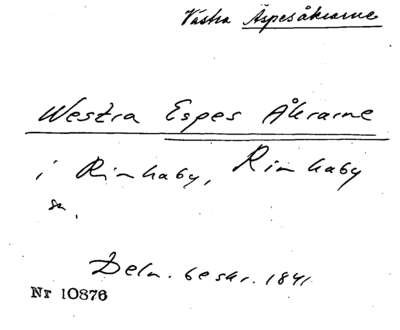 Västra Äspesåkrarne
Westra Espes Åkrarne
i Rinkaby, Rinkaby
sn.
Deln. beskr. 1841
Nr 10876